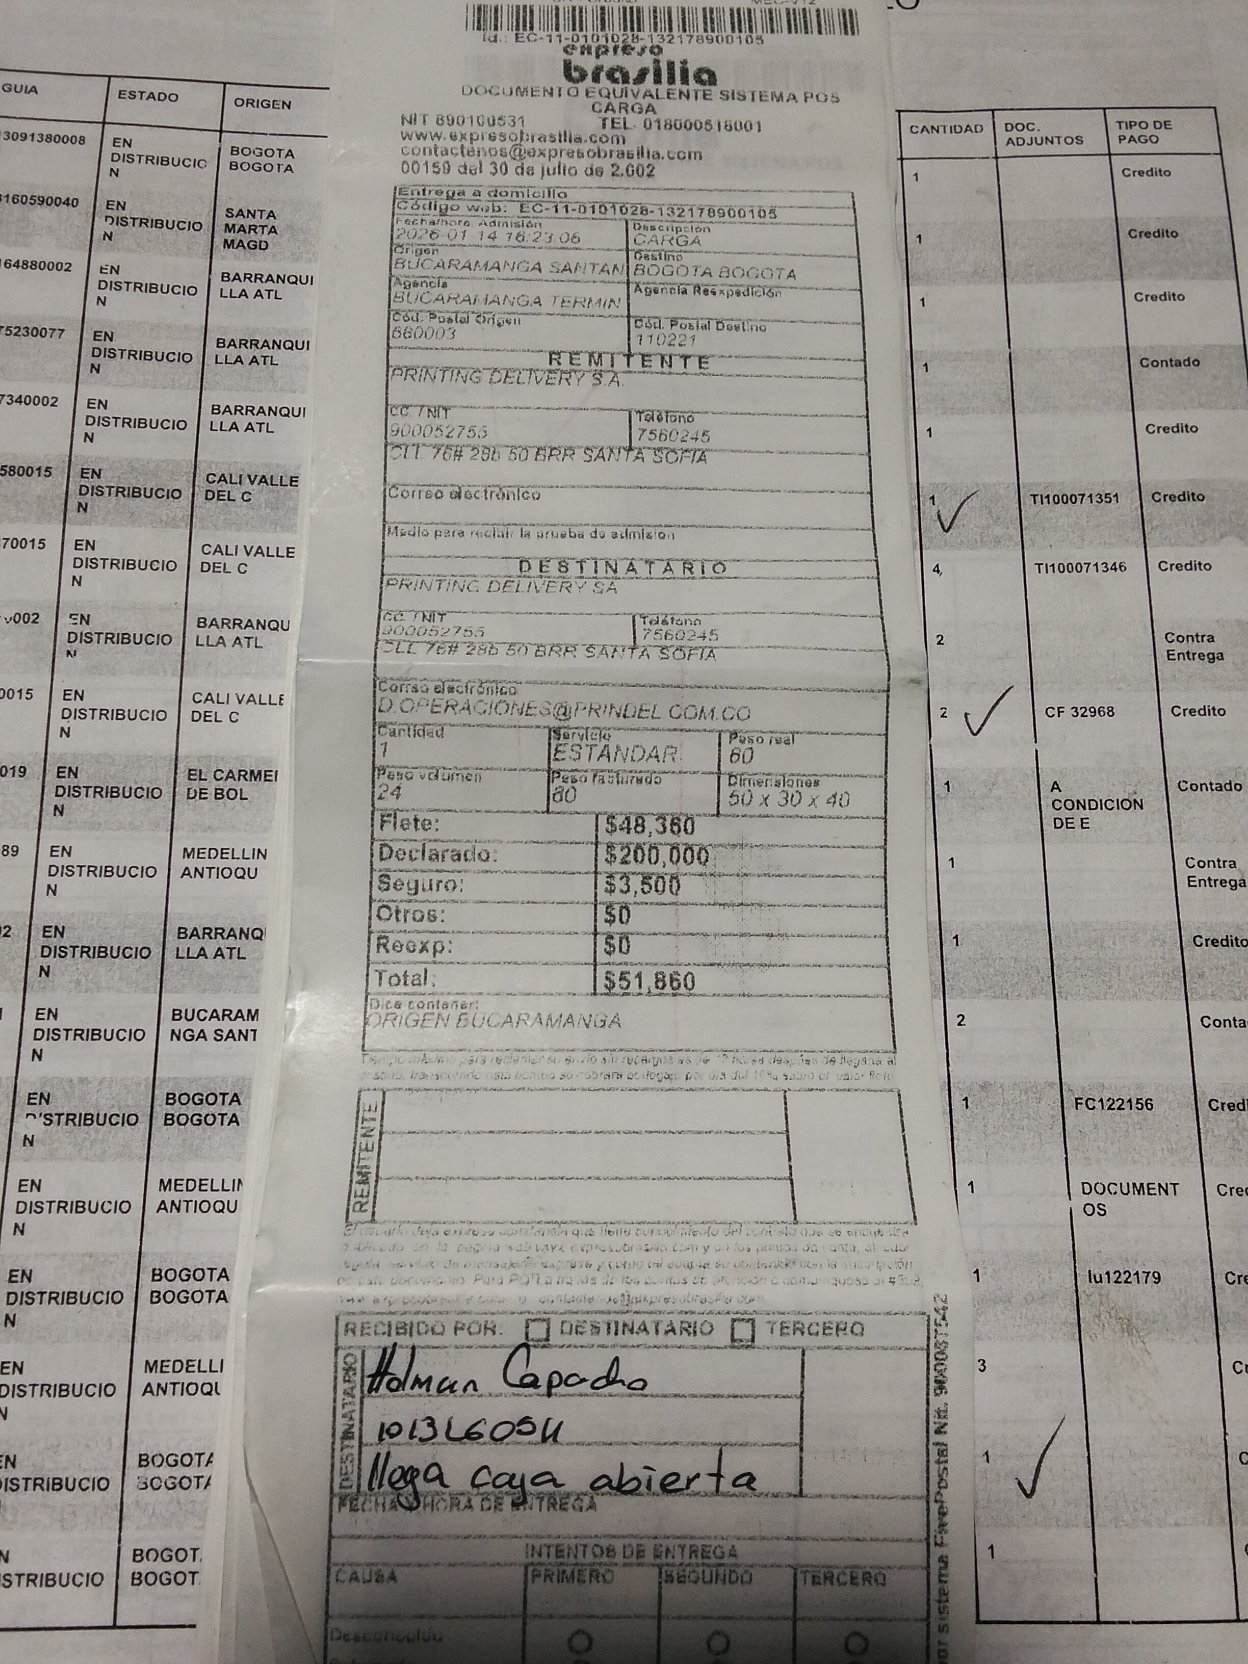 GUIA ESTADO ORIGEN
3091380008 EN DISTRIBUCIO N BOGOTA BOGOTA
160590040 EN DISTRIBUCIO N SANTA MARTA MAGD
64880002 EN DISTRIBUCIO N BARRANQUI LLA ATL
75230077 EN DISTRIBUCIO N BARRANQUI LLA ATL
7340002 EN DISTRIBUCIO N BARRANQUI LLA ATL
580015 EN DISTRIBUCIO N CALI VALLE DEL C
70015 EN DISTRIBUCIO N CALI VALLE DEL C
002 EN DISTRIBUCIO N BARRANQU LLA ATL
0015 EN DISTRIBUCIO N CALI VALLE DEL C
019 EN DISTRIBUCIO N EL CARMEI DE BOL
89 EN DISTRIBUCIO N MEDELLIN ANTIOQU
2 EN DISTRIBUCIO N BARRANQ LLA ATL
EN DISTRIBUCIO N BUCARAM NGA SANT
EN DISTRIBUCIO N BOGOTA BOGOTA
EN DISTRIBUCIO N MEDELLIN ANTIOQU
EN DISTRIBUCIO N BOGOTA BOGOTA
EN DISTRIBUCIO N MEDELLI ANTIOQU
EN DISTRIBUCIO BOGOTA BOGOTA
N STRIBUCIO BOGOT BOGOT
Id.: EC-11-0101028-132178900105
expreso
brasilia
DOCUMENTO EQUIVALENTE SISTEMA POS
CARGA
NIT 890100531 TEL. 018000518001
www.expresobrasilia.com
contactenos@expresobrasilia.com
00159 del 30 de julio de 2.002
Entrega a domicilio
Código web: EC-11-0101028-132178900105
Fecha/hora Admisión Descripción
2026-01-14 16:23:06 CARGA
Origen Destino
BUCARAMANGA SANTAN BOGOTA BOGOTA
Agencia Agencia Reexpedición
BUCARAMANGA TERMIN
Cód. Postal Origen Cód. Postal Destino
680003 110221
REMITENTE
PRINTING DELIVERY S.A.
CC. / NIT Teléfono
900052755 7560245
CLL 76# 28b 50 BRR SANTA SOFIA
Correo electrónico
Medio para recibir la prueba de admision
DESTINATARIO
PRINTING DELIVERY SA
CC. / NIT Teléfono
900052755 7560245
CLL 76# 28b 50 BRR SANTA SOFIA
Correo electrónico
D.OPERACIONES@PRINDEL.COM.CO
Cantidad Servicio Peso real
1 ESTANDAR 60
Peso volumen Peso facturado Dimensiones
24 60 50 x 30 x 40
Flete: $48,360
Declarado: $200,000
Seguro: $3,500
Otros: $0
Reexp: $0
Total: $51,860
Dice contener:
ORIGEN BUCARAMANGA
REMITENTE
RECIBIDO POR: DESTINATARIO TERCERO
DESTINATARIO
Holman Capacho
llega caja abierta
FECHA Y HORA DE ENTREGA
INTENTOS DE ENTREGA
CAUSA PRIMERO SEGUNDO TERCERO
Desconocido
CANTIDAD DOC. ADJUNTOS TIPO DE PAGO
1 Credito
1 Credito
1 Credito
1 Contado
1 Credito
1 TI100071351 Credito
4 TI100071346 Credito
2 Contra Entrega
2 CF 32968 Credito
1 A CONDICION DE E Contado
1 Contra Entrega
1 Credito
2 Conta
1 FC122156 Credi
1 DOCUMENT OS Cre
1 Iu122179 Cre
3
1
1